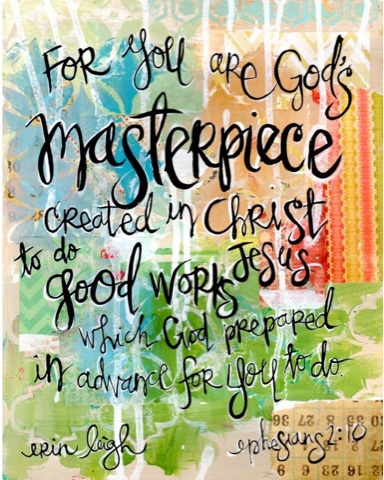 For You are God's
masterpiece
created in Christ
to do Jesus
good works
which God prepared
in advance for you to do.
erin leigh
ephesians 2:10